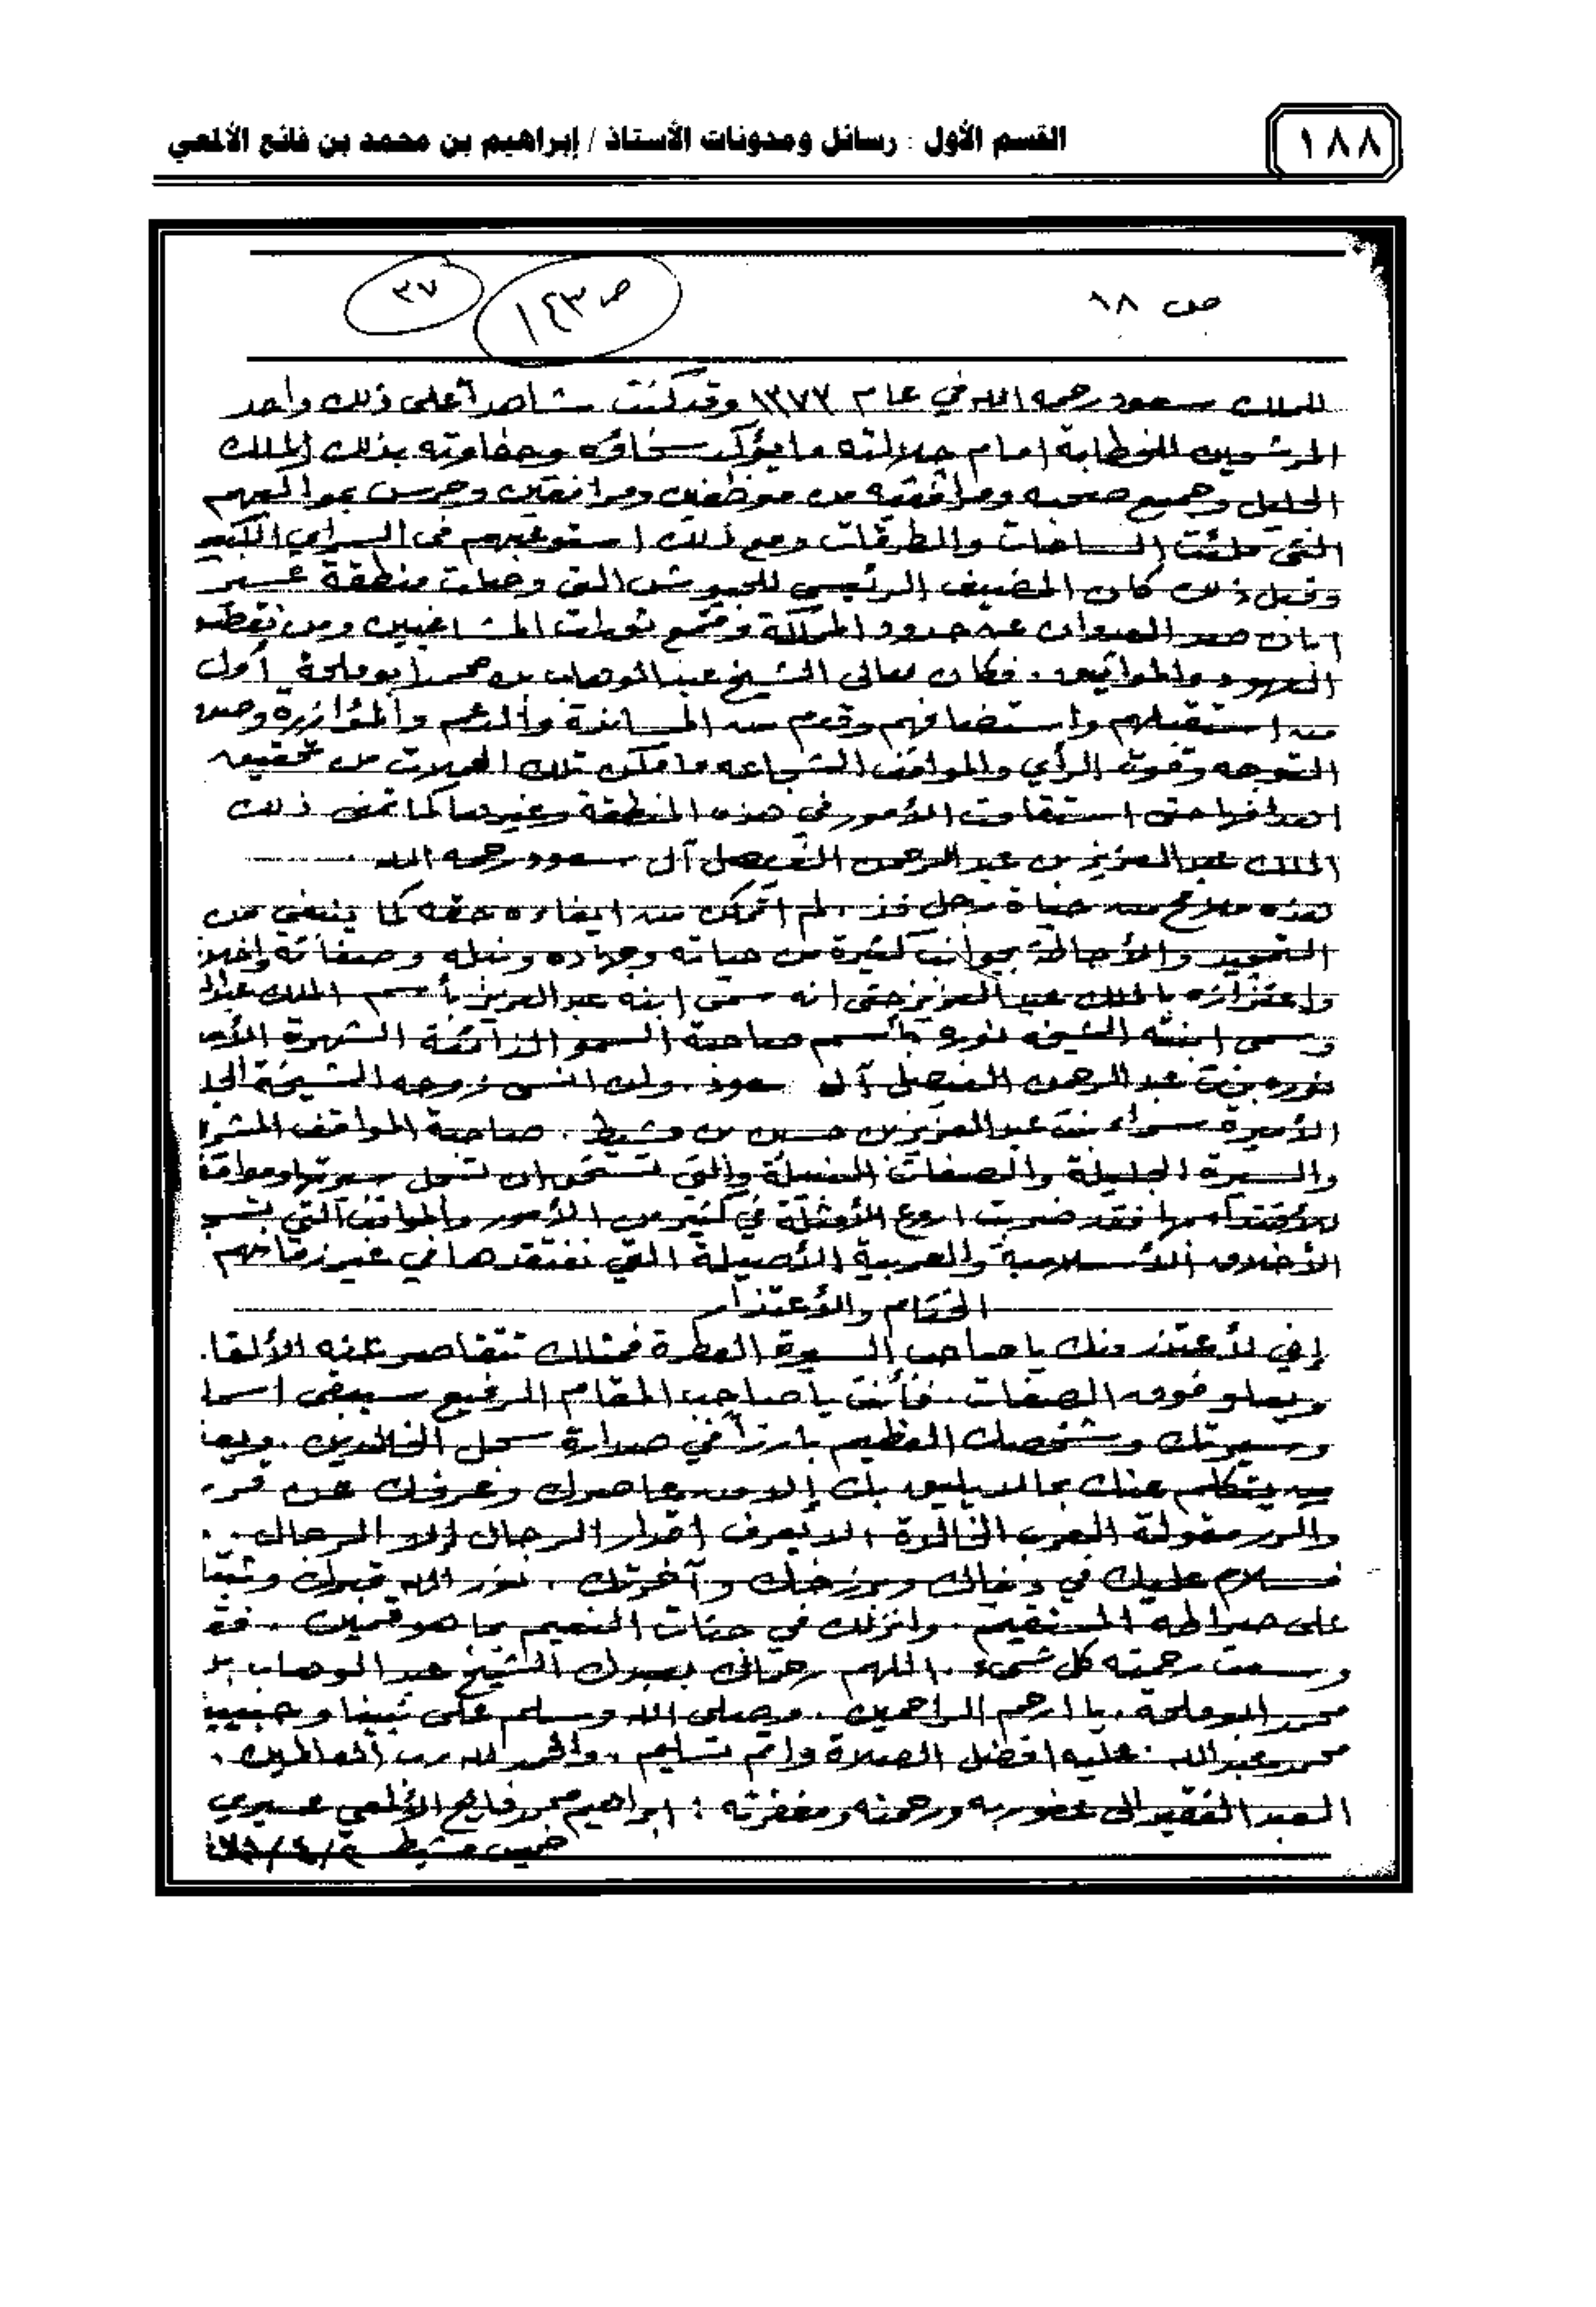 ١٨٨
القسم الأول : رسائل ومدونات الأستاذ / إبراهيم بن محمد بن فائع الألمعي
ص ١٨
ص ١٤٣
٣٧
للملك سعود رحمه الله في عام ١٣٧٣ وقد كنت شاهداً على ذلك واحد
المرشحين للخطابة امام جلالته ما يؤكد سخاؤه وحفاوته بذلك الملك
الجليل وجميع صحبه ومرافقيه من موظفين ومرافقين وحرس بمواكبهم
التي ملئت الساحات والطرقات ومع ذلك استوعبهم في السراي الكبير
وقبل ذلك كان المضيف الرئيسي للجيوش التي وصلت منطقة عسير
إبان صد العدوان عن حدود المملكة وقمع ثورات المشاغبين ومن نقضو
العهود والمواثيق . فكان معالي الشيخ عبدالوهاب بن محمد أبو ملحة أول
من استقبلهم واستضافهم وقدم من المساندة والدعم والمؤازرة وحسن
التوجه وقوت الرأي والمواقف الشجاعه ما مكن تلك الحملات من تحقيق
اهدافها حتى استقامت الأمور في هذه المنطقة وغيرها كما تمنى ذلك
الملك عبدالعزيز بن عبدالرحمن الفيصل آل سعود رحمه الله .
هذه ملامح من حياة رجل فذ . لم اتمكن من ايفاءه حقه كما ينبغي من
التمجيد والأحاطة بجوانب كثيرة من حياته وجهاده ونبله وصفاته واخلا
واعتزازه بالملك عبدالعزيز حتى انه سمى ابنه عبدالعزيز بأسم الملك عبدال
وسمى ابنته الشيخه نوره بأسم صاحبة السمو الذائعة الشهرة الأمي
نوره بنت عبدالرحمن الفيصل آل سعود . ولن انسى زوجه الشيخة الجل
الأميرة سراء بنت عبدالعزيز بن حسين بن مشيط . صاحبة المواقف المشر
والسيرة الجليلة والصفات النبيلة والتي تستحق ان تسجل سيرتها ومواقف
للأقتداء بها فقد ضربت اروع الأمثلة في كثير من الأمور والمواقف التي
الأخلاق الأسلامية والعربية الأصيلة التي نفتقدها في غير زماجهم
الختام والأعتذار
إني لأعتذر منك يا صاحب السيرة العطرة فمثلك تتقاصر عنه الألقا
ويعلو فوق الصفات . فأنت يا صاحب المقام الرفيع سيبقى اسما
وسيرتك وشخصك العظيم بارزاً في صدارة سجل الخالدين .
يتكلم عنك بما لا يليق بك إلا من عاصرك وعرفك عن قر
مقولة العرب الخالدة . لا يعرف اقدار الرجال إلا الرجال . .
فسلام عليك في دنياك وبرزخك وآخرتك . نور الله قبرك وثبتا
على صراطه المستقيم . وانزلك في جنات النعيم بما هو قمين . فقد
وسعت رحمته كل شيء . اللهم رحماك بعبدك الشيخ عبدالوهاب بـ
محمد ابوملحة . يا ارحم الراحمين . وصلى الله وسلم على نبينا وحبيبنا
محمد بن عبدالله . عليه افضل الصلاة واتم تسليم . والحمد لله رب العالمين .
العبد الفقير الى عفو ربه ورحمته ومغفرته : ابراهيم محمد فايع الألمعي عسيري
خميس مشيط